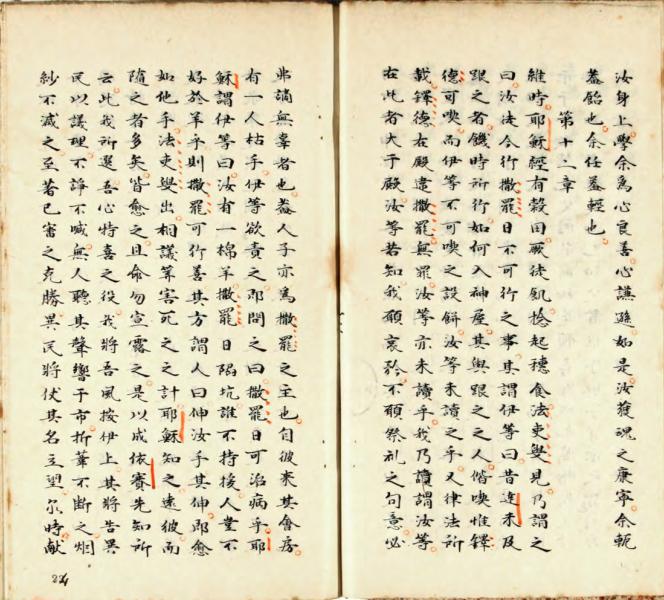 汝身上學余為心良善心謙遜如是汝獲魂之康寧余軛
蓋飴也余任蓋輕也
第十二章
維時耶穌經有穀田厥徒飢捻起穗食法吏見乃謂之
曰汝徒今行撒罷日不可行之事其謂伊等曰昔達未及
跟之者饑時所行如何入神屋其與跟之之人偕喫惟鐸
德可喫而伊等不可喫之設餅汝等未讀之乎又律法所
載鐸德在殿違撒罷無罪汝等亦未讀乎我乃讀謂汝等
在此者大于殿汝等若知我願哀矜不願祭礼之句意必
弗謫無辜者也蓋人子亦為撒罷之主也自彼來其會房
有一人枯手伊等欲責之即問之曰撒罷日可治病乎耶
穌謂伊等曰汝有一棉羊撒罷日陷坑誰不持援人豈不
好於羊乎則撒罷可行善其方謂人曰伸汝手其伸即愈
如他手法吏出相議筭害死之之計耶穌知之遠彼而
隨之者多矣皆愈之且命勿宣露之是以成依賽先知所
云此我所選吾心特喜之役我將吾風按伊上其將告異
民以議理不諍不喊無人聽其聲響于市折葦不斷之烟
紗不滅之至著已審之克勝異民將伏其名立望尔時献
224